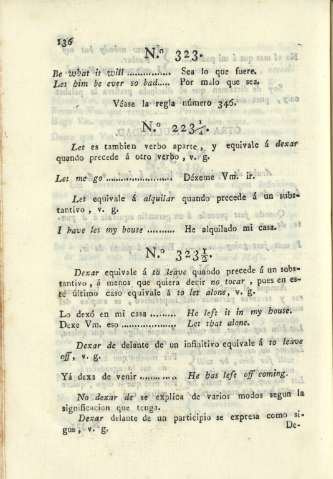 136
N.º 323.
Be what it will ............... Sea lo que fuere.
Let him be ever so bad..... Por malo que sea.
Véase la regla número 346.
N.º 223¼.
Let es tambien verbo aparte, y equivale á dexar
quando precede á otro verbo, v. g.
Let me go ....................... Déxeme Vm. ir.
Let equivale á alquilar quando precede á un subs-
tantivo, v. g.
I have let my house .......... He alquilado mi casa.
N.º 323½.
Dexar equivale á to leave quando precede á un subs-
tantivo, á menos que quiera decir no tocar, pues en es-
te último caso equivale á to let alone, v. g.
Lo dexó en mi casa .......... He left it in my house.
Dexe Vm. eso .................. Let that alone.
Dexar de delante de un infinitivo equivale á to leave
off, v. g.
Yá dexa de venir ............ He has left off coming.
No dexar de se explica de varios modos segun la
significacion que tenga.
Dexar delante de un participio se expresa como si-
gue, v. g.
De-